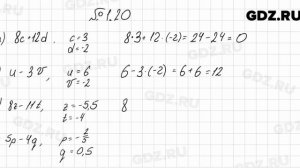 GDZ.RU
№1.20
) 8c+12d. c=3 d=-2 8·3+12·(-2)=24-24=0
) u-3v, u=6 v=-2 6-3·(-2)=6+6=12
8z-11t, z=-5,5 t=-4 8
5p-4q, p=- q=0,5
GDZ.RU